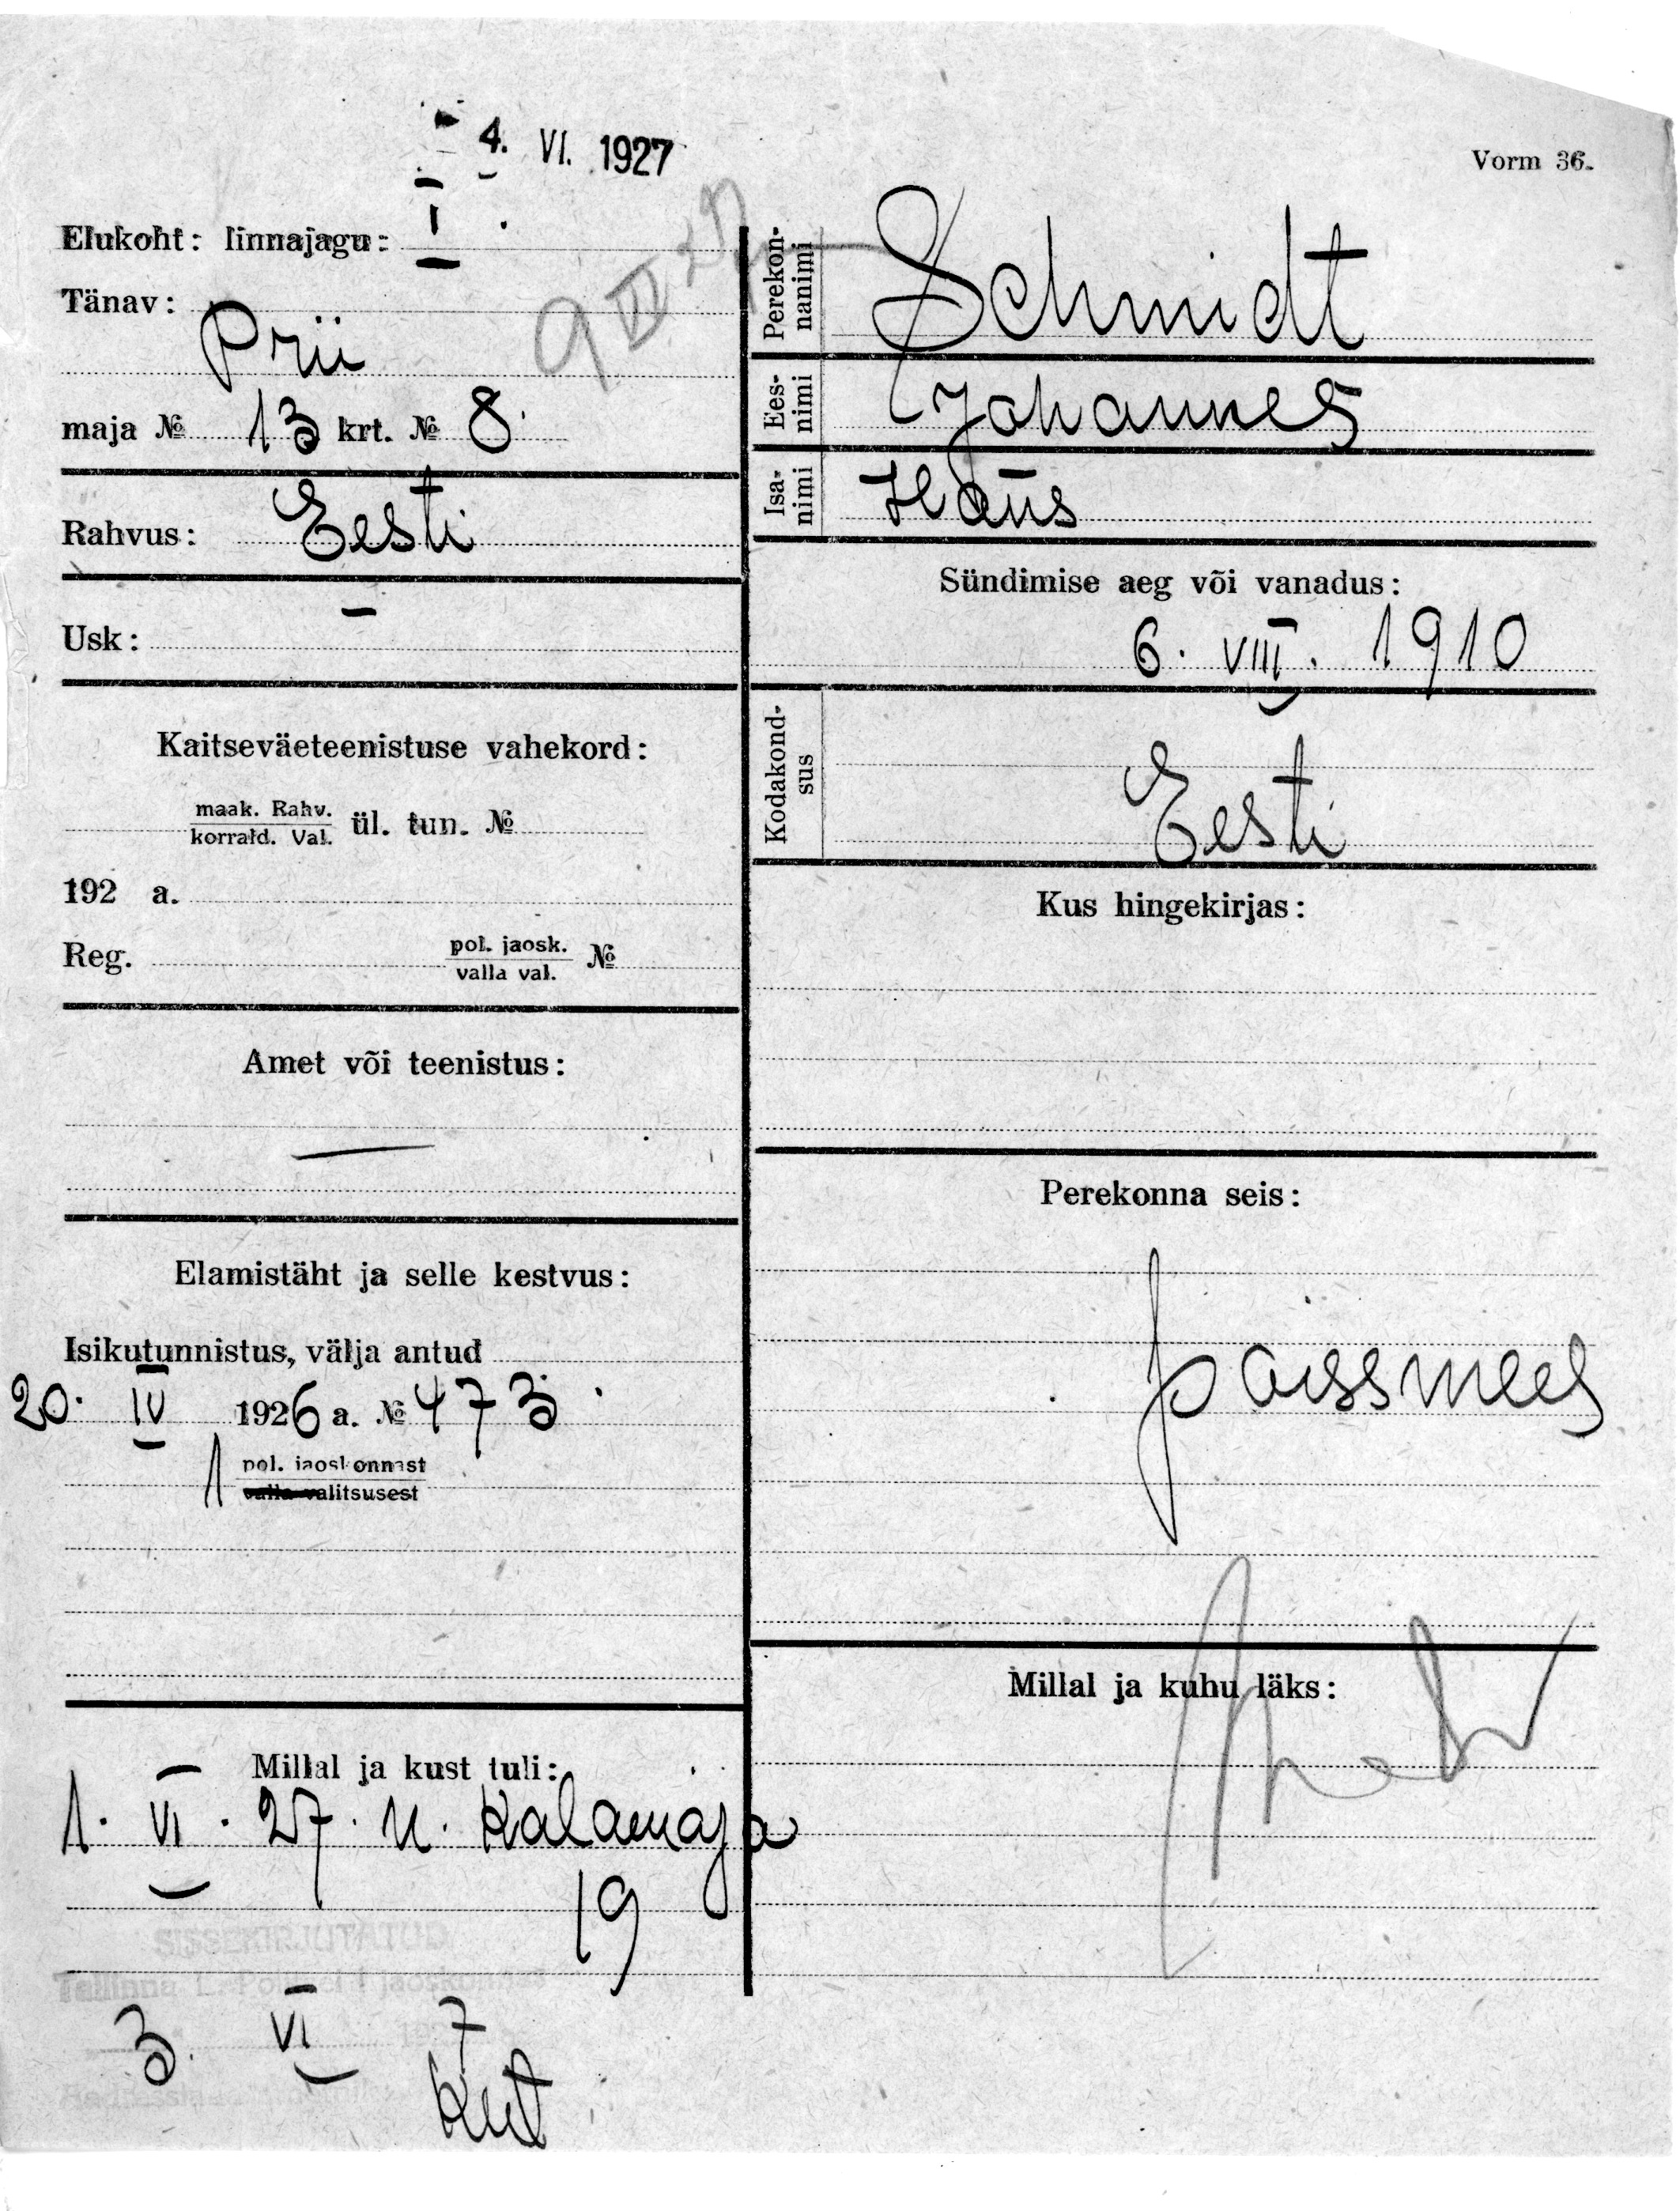 4. VI. 1927
Vorm 36.
Elukoht: linnajagu: I
Tänav:
Prii
maja № 13 krt. № 8.
Rahvus: Eesti
Usk: –
Kaitseväeteenistuse vahekord:
maak. Rahv.
korrald. Val. ül. tun. №
192 a.
Reg. pol. jaosk.
valla val. №
Amet või teenistus:
—
Elamistäht ja selle kestvus:
Isikutunnistus, välja antud
20. IV 1926 a. № 473.
1 pol. jaoskonnast
valla valitsusest
Millal ja kust tuli:
1. VI. 27. u. Kalamaja
19
SISSEKIRJUTATUD
Tallinna L. Politsei I jaoskonnas
3. VI 7
9 VI 27
Perekon-
nanimi
Schmidt
Ees-
nimi
Johannes
Isa-
nimi
Sündimise aeg või vanadus:
6. VIII. 1910
Kodakond-
sus
Eesti
Kus hingekirjas:
Perekonna seis:
poissmees
Millal ja kuhu läks: